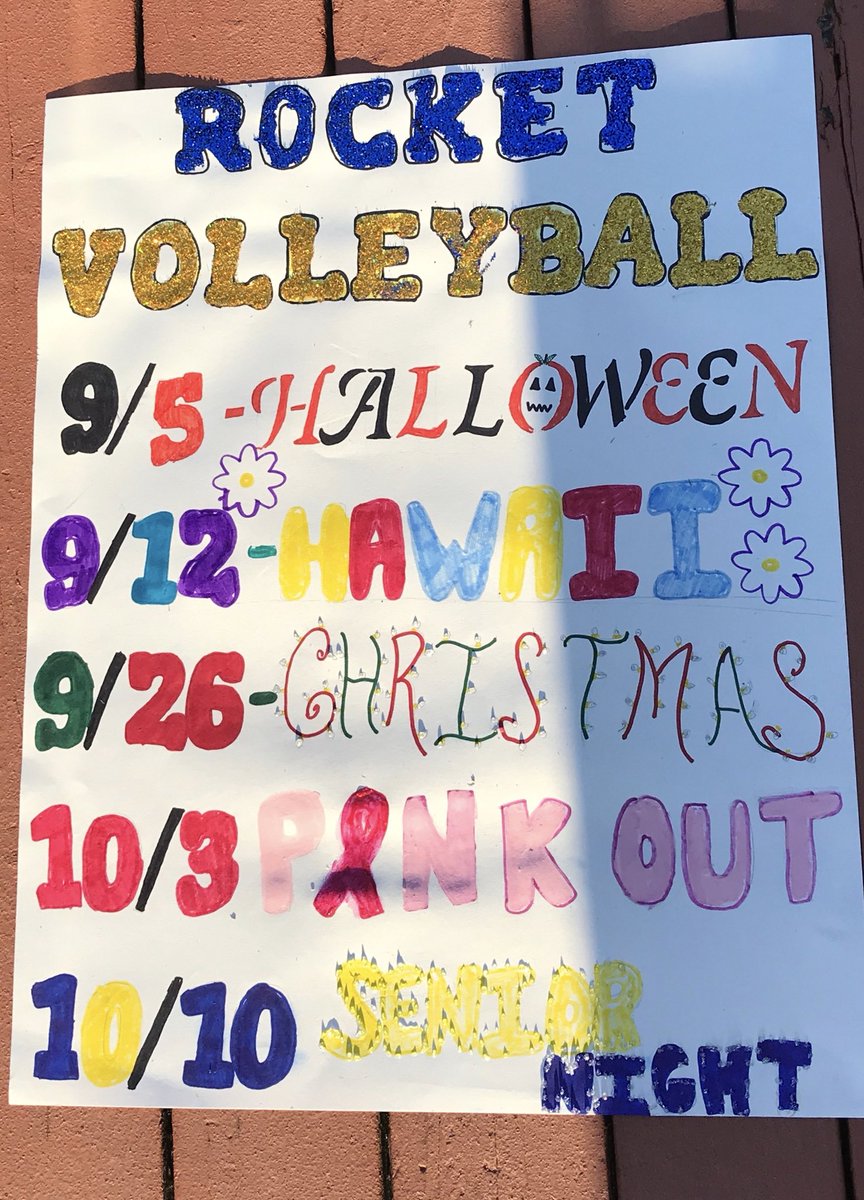 ROCKET
VOLLEYBALL
9/5-HALLOWEEN
9/12-HAWAII
9/26-CHRISTMAS
10/3 PINK OUT
10/10 SENIOR
NIGHT